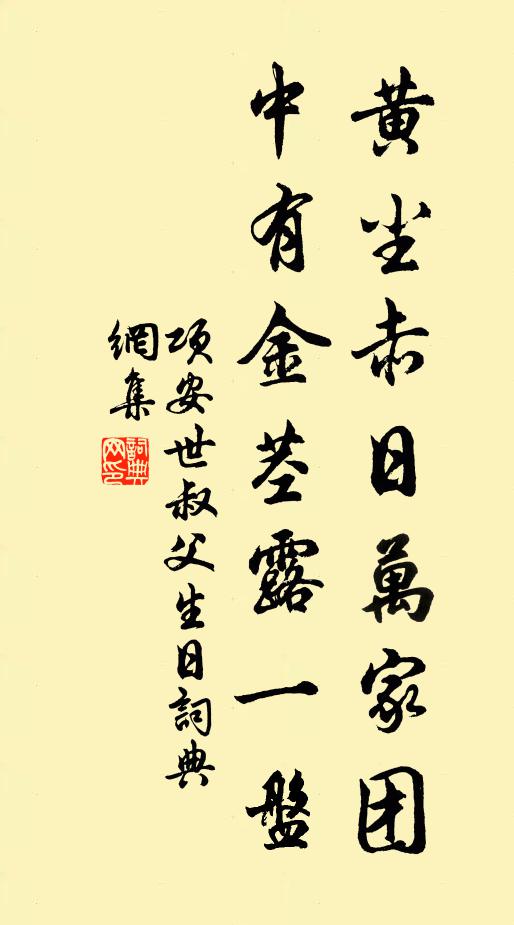 黄尘赤日萬家团
中有金茎露一盤
项安世叔父生日詞典
網集
詞典网印